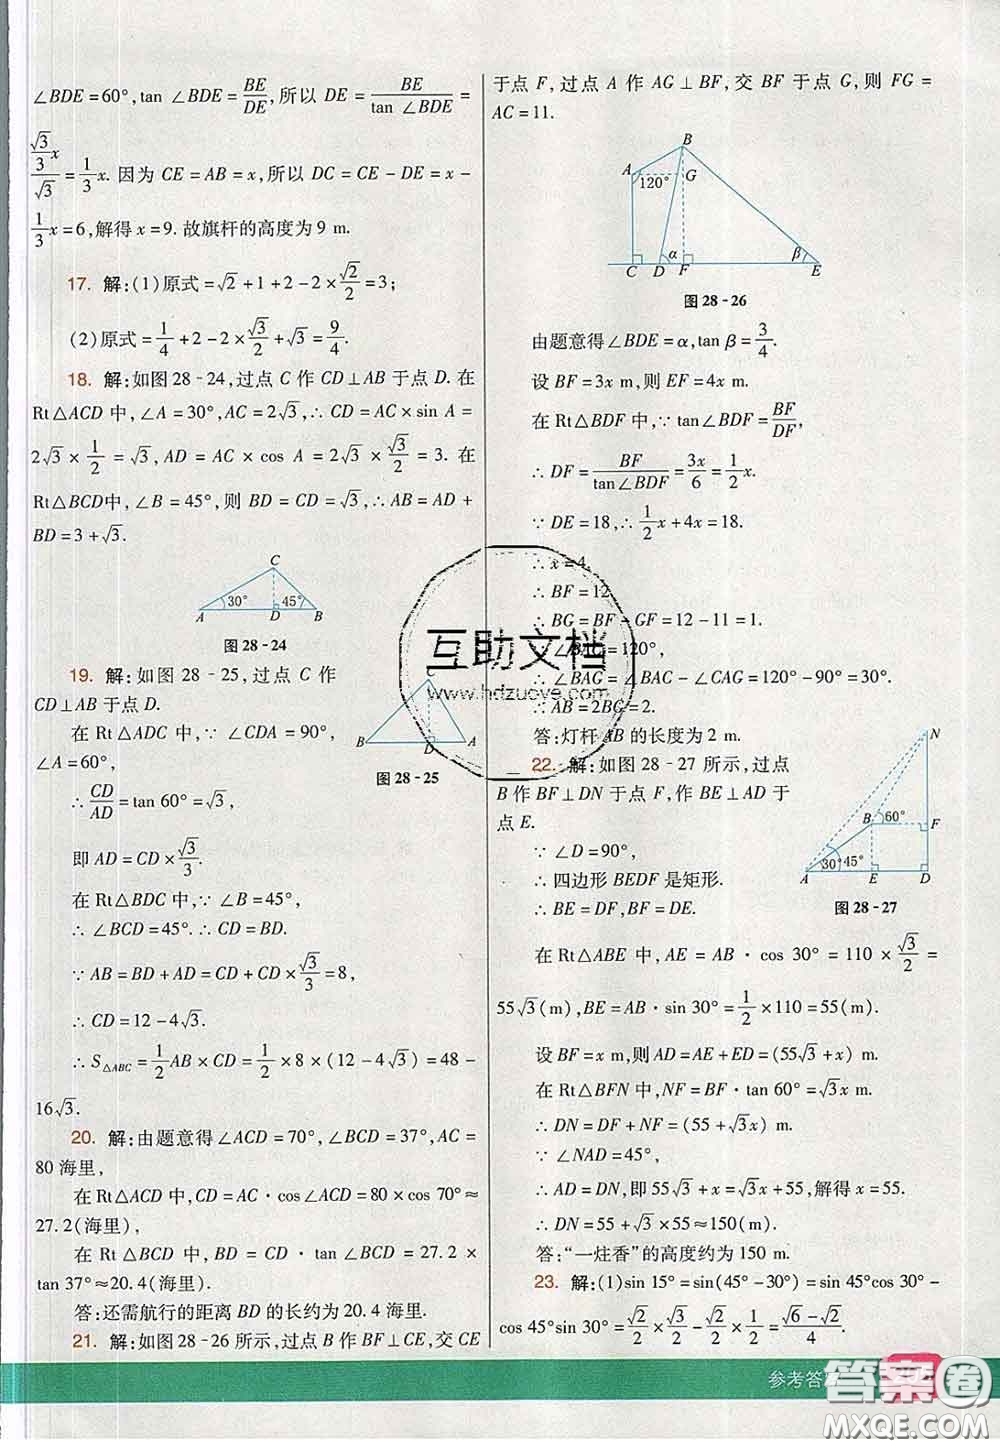 ∠BDE=60°,tan ∠BDE=BE/DE,所以 DE=BE/tan ∠BDE=
(√3/3 x)/√3=1/3x. 因为 CE=AB=x,所以 DC=CE-DE=x-
1/3x=6,解得 x=9. 故旗杆的高度为 9 m.
17. 解:(1)原式=√2+1+2-2×√2/2=3;
(2)原式=1/4+2-2×√3/2+√3=9/4.
18. 解:如图 28-24,过点 C 作 CD⊥AB 于点 D. 在
Rt△ACD 中,∠A=30°,AC=2√3,∴ CD=AC×sin A=
2√3×1/2=√3,AD=AC×cos A=2√3×√3/2=3. 在
Rt△BCD中,∠B=45°,则 BD=CD=√3,∴ AB=AD+
BD=3+√3.
C
30° 45°
A D B
图 28-24
19. 解:如图 28-25,过点 C 作
CD⊥AB 于点 D.
在 Rt△ADC 中,∵ ∠CDA=90°,
∠A=60°,
C
B D A
图 28-25
∴ CD/AD=tan 60°=√3,
即 AD=CD×√3/3.
在 Rt△BDC 中,∵ ∠B=45°,
∴ ∠BCD=45°. ∴ CD=BD.
∵ AB=BD+AD=CD+CD×√3/3=8,
∴ CD=12-4√3.
∴ S△ABC=1/2AB×CD=1/2×8×(12-4√3)=48-
16√3.
20. 解:由题意得∠ACD=70°,∠BCD=37°,AC=
80 海里,
在 Rt△ACD 中,CD=AC·cos∠ACD=80×cos 70°≈
27.2(海里),
在 Rt△BCD 中,BD=CD·tan ∠BCD=27.2×
tan 37°≈20.4(海里).
答:还需航行的距离 BD 的长约为 20.4 海里.
21. 解:如图 28-26 所示,过点 B 作 BF⊥CE,交 CE
于点 F,过点 A 作 AG⊥BF,交 BF 于点 G,则 FG=
AC=11.
B
A 120° G
α β
C D F E
图 28-26
由题意得∠BDE=α,tan β=3/4.
设 BF=3x m,则 EF=4x m.
在 Rt△BDF 中,∵ tan∠BDF=BF/DF,
∴ DF=BF/tan∠BDF=3x/6=1/2x.
∵ DE=18,∴ 1/2x+4x=18.
∴ x=4.
∴ BF=12,
∴ BG=BF-GF=12-11=1.
∵ ∠BAC=120°,
∴ ∠BAG=∠BAC-∠CAG=120°-90°=30°.
∴ AB=2BG=2.
答:灯杆 AB 的长度为 2 m.
22. 解:如图 28-27 所示,过点
B 作 BF⊥DN 于点 F,作 BE⊥AD 于
点 E.
N
B 60° F
30° 45°
A E D
图 28-27
∵ ∠D=90°,
∴ 四边形 BEDF 是矩形.
∴ BE=DF,BF=DE.
在 Rt△ABE 中,AE=AB·cos 30°=110×√3/2=
55√3(m),BE=AB·sin 30°=1/2×110=55(m).
设 BF=x m,则 AD=AE+ED=(55√3+x) m.
在 Rt△BFN 中,NF=BF·tan 60°=√3x m.
∴ DN=DF+NF=(55+√3x) m.
∵ ∠NAD=45°,
∴ AD=DN,即 55√3+x=√3x+55,解得 x=55.
∴ DN=55+√3×55≈150(m).
答:“一炷香”的高度约为 150 m.
23. 解:(1)sin 15°=sin(45°-30°)=sin 45°cos 30°-
cos 45°sin 30°=√2/2×√3/2-√2/2×1/2=(√6-√2)/4.
互助文档
www.hdzuoye.com
参考答案
答案圈
MXQE.COM